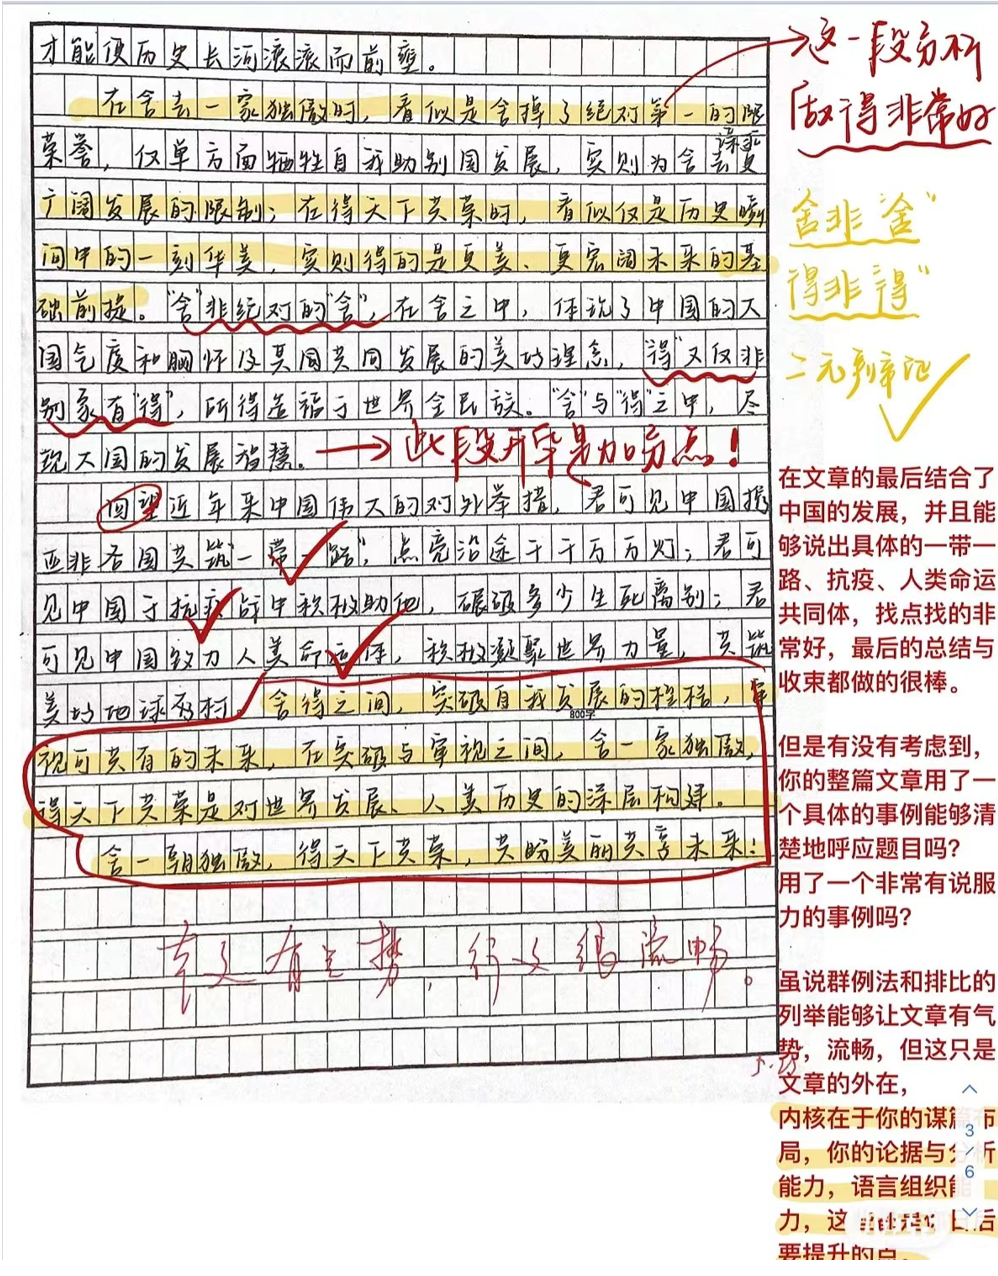 才能使历史长河滚滚而前壅。
在舍去一家独傲时，看似是舍掉了绝对第一的限
荣誉，仅单方面牺牲自我助别国发展，实则为舍去更
深
广阔发展的限制；在得天下共荣时，看似仅是历史瞬
间中的一刻华美，实则得的是更美、更宏阔未来的基
础前提。"舍"非绝对的"舍"，在舍之中，体现了中国的大
国气度和胸怀及共同共同发展的美好理念，"得"又仅非
别家有"得"，所得造福于世界全民族。"舍"与"得"之中，尽
现大国的发展智慧。
回望近年来中国伟大的对外举措，君可见中国携
亚非各国共筑"一带一路"，点亮沿途千千万万灯；君可
见中国于抗疫战中积极助他，碾破多少生死离别；君
可见中国致力人类命运体，积极凝聚世界力量，共筑
美好地球乡村。舍得之间，突破自我发展的桎梏，审
800字
视可共有的未来，在突破与审视之间，舍一家独傲，
得天下共荣是对世界发展、人类历史的深层构建。
舍一朝独傲，得天下共荣，共盼美丽共享未来！
本文有气势，行文很流畅。
这一段分析
做得非常好
舍非"舍"
得非"得"
二元辩证
此段升华是加分点！
在文章的最后结合了
中国的发展，并且能
够说出具体的一带一
路、抗疫、人类命运
共同体，找点找的非
常好，最后的总结与
收束都做的很棒。
但是有没有考虑到，
你的整篇文章用了一
个具体的事例能够清
楚地呼应题目吗？
用了一个非常有说服
力的事例吗？
虽说群例法和排比的
列举能够让文章有气
势，流畅，但这只是
文章的外在，
内核在于你的谋篇布
局，你的论据与分析
能力，语言组织能
力，这 日后
要提升的点。
3
6